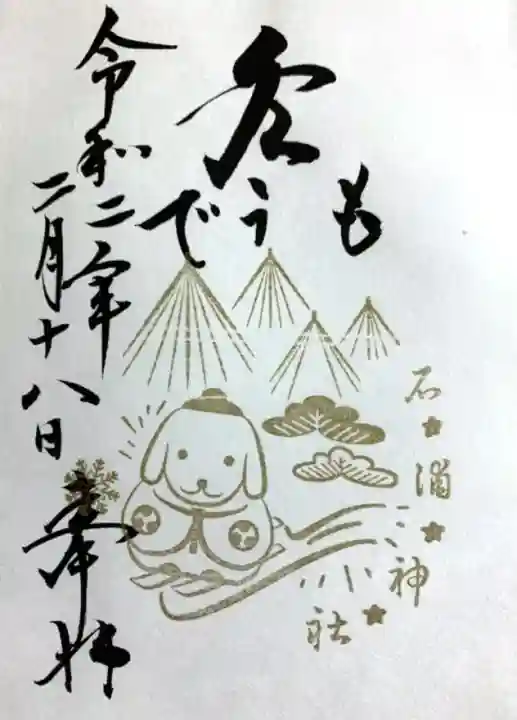 石★浦★神★社
冬もうで
令和二年
二月十八日
奉拝